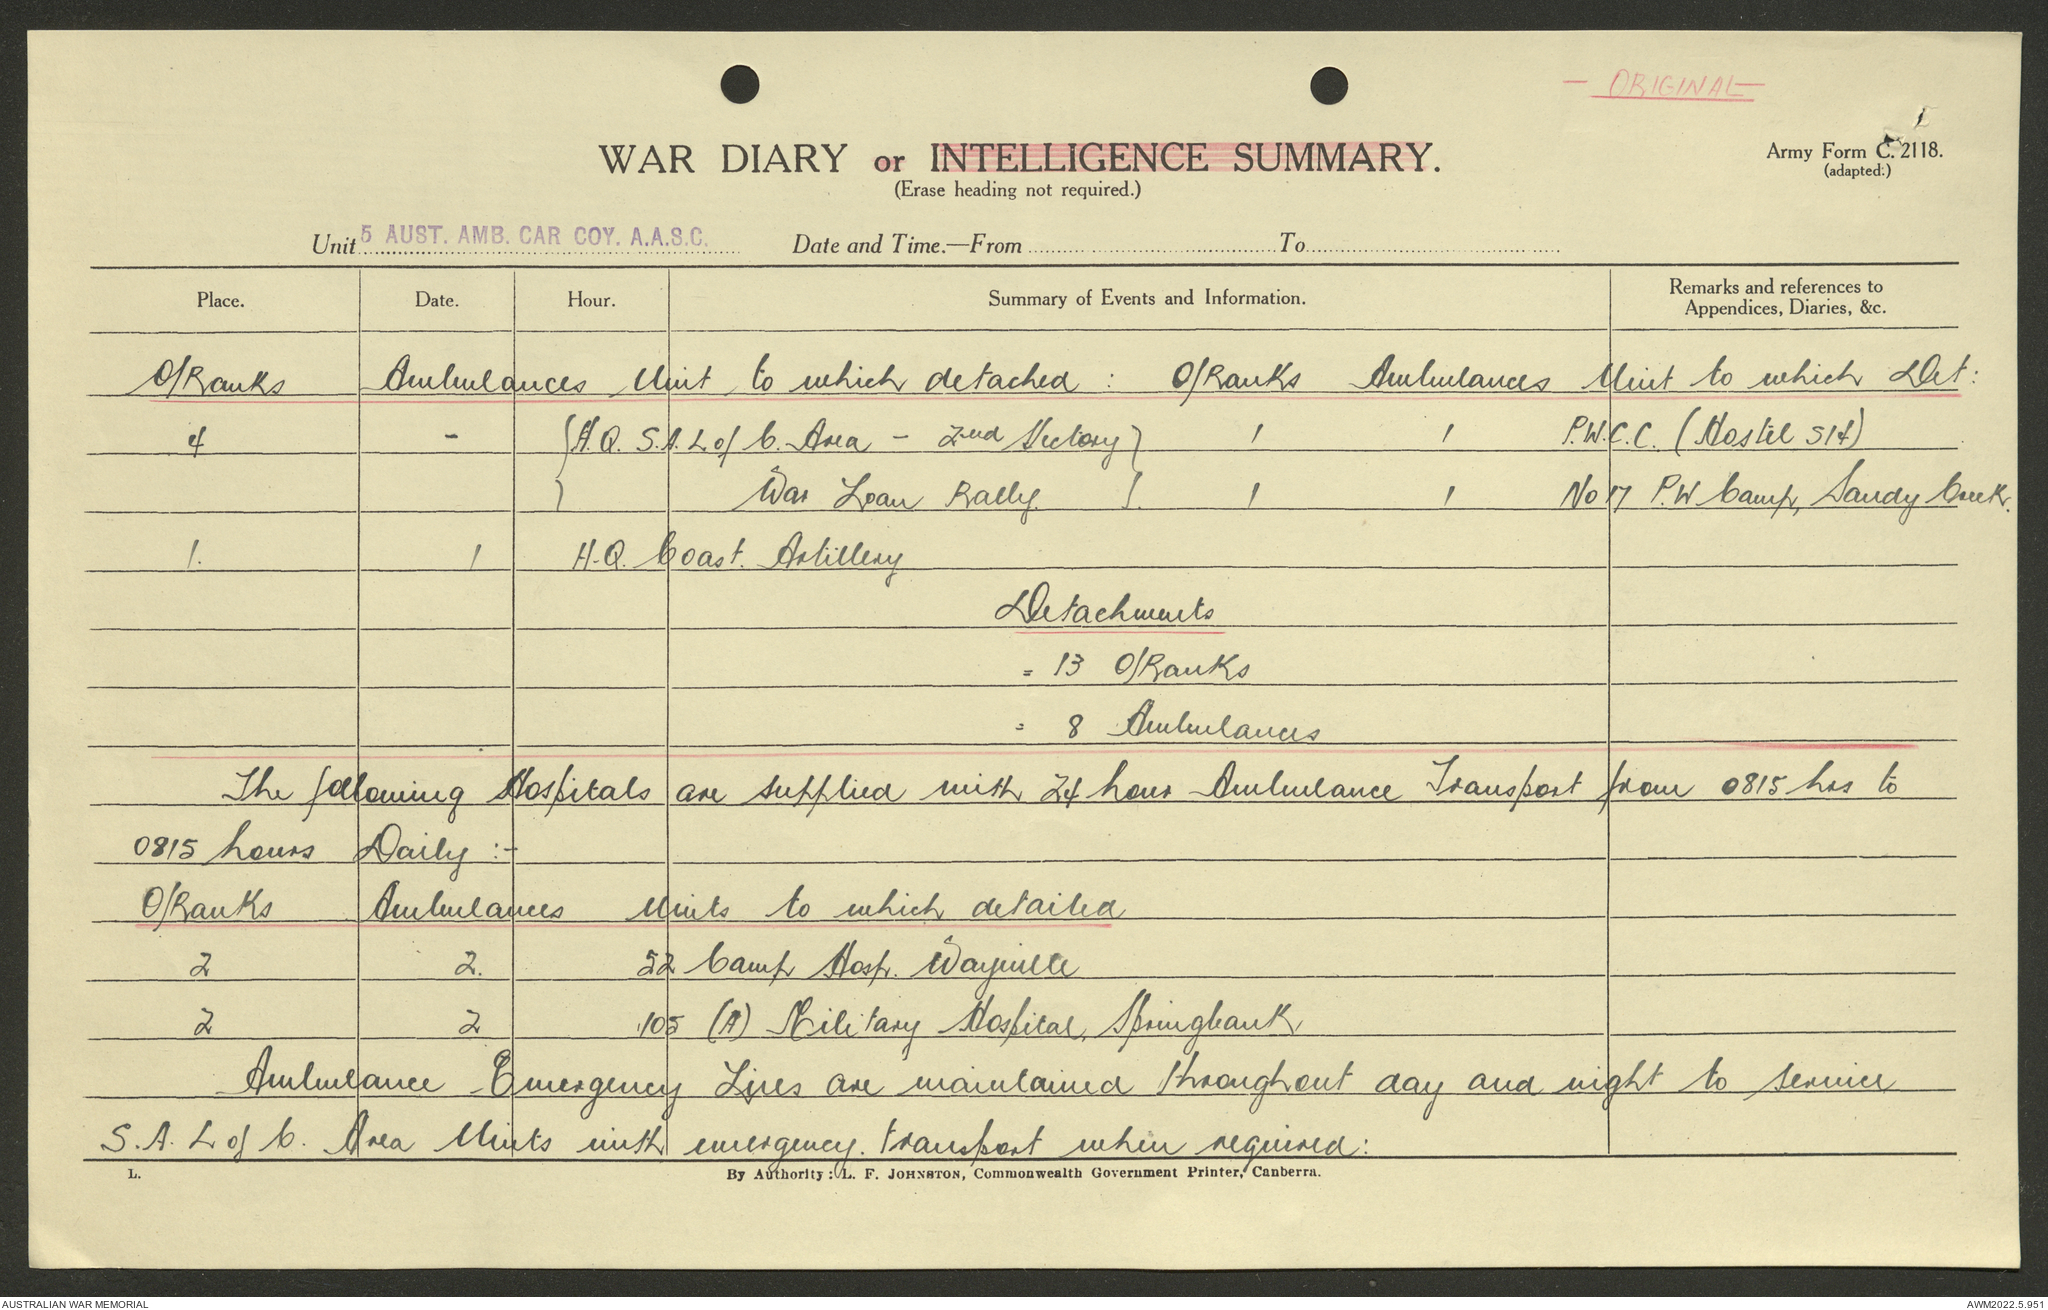 - ORIGINAL -
WAR DIARY or INTELLIGENCE SUMMARY.
(Erase heading not required.)
Army Form C. 2118.
(adapted.)
Unit 5 AUST. AMB. CAR COY. A.A.S.C. Date and Time.—From To
Place. Date. Hour. Summary of Events and Information. Remarks and references to Appendices, Diaries, &c.
O/Ranks Ambulances Unit to which detached : O/Ranks Ambulances Unit to which Det:
4 - {H.Q. S.A. L of C. Area - 2nd Victory} 1 1 P.W.C.C. (Hostel S14)
} War Loan Rally. }. 1 1 No 17 P.W Camp, Sandy Creek.
1. 1 H.Q. Coast. Artillery
Detachments
= 13 O/Ranks
= 8 Ambulances
The following Hospitals are supplied with 24 hour Ambulance Transport from 0815 hrs to
0815 hours Daily :-
O/Ranks Ambulances Units to which detailed
2 2. 52 Camp Hosp. Wayville
2 2 105 (A) Military Hospital, Springbank
Ambulance Emergency Lines are maintained throughout day and night to service
S.A. L of C. Area Units with emergency. transport when required:
L. By Authority: L. F. JOHNSTON, Commonwealth Government Printer, Canberra.
AUSTRALIAN WAR MEMORIAL AWM2022.5.951